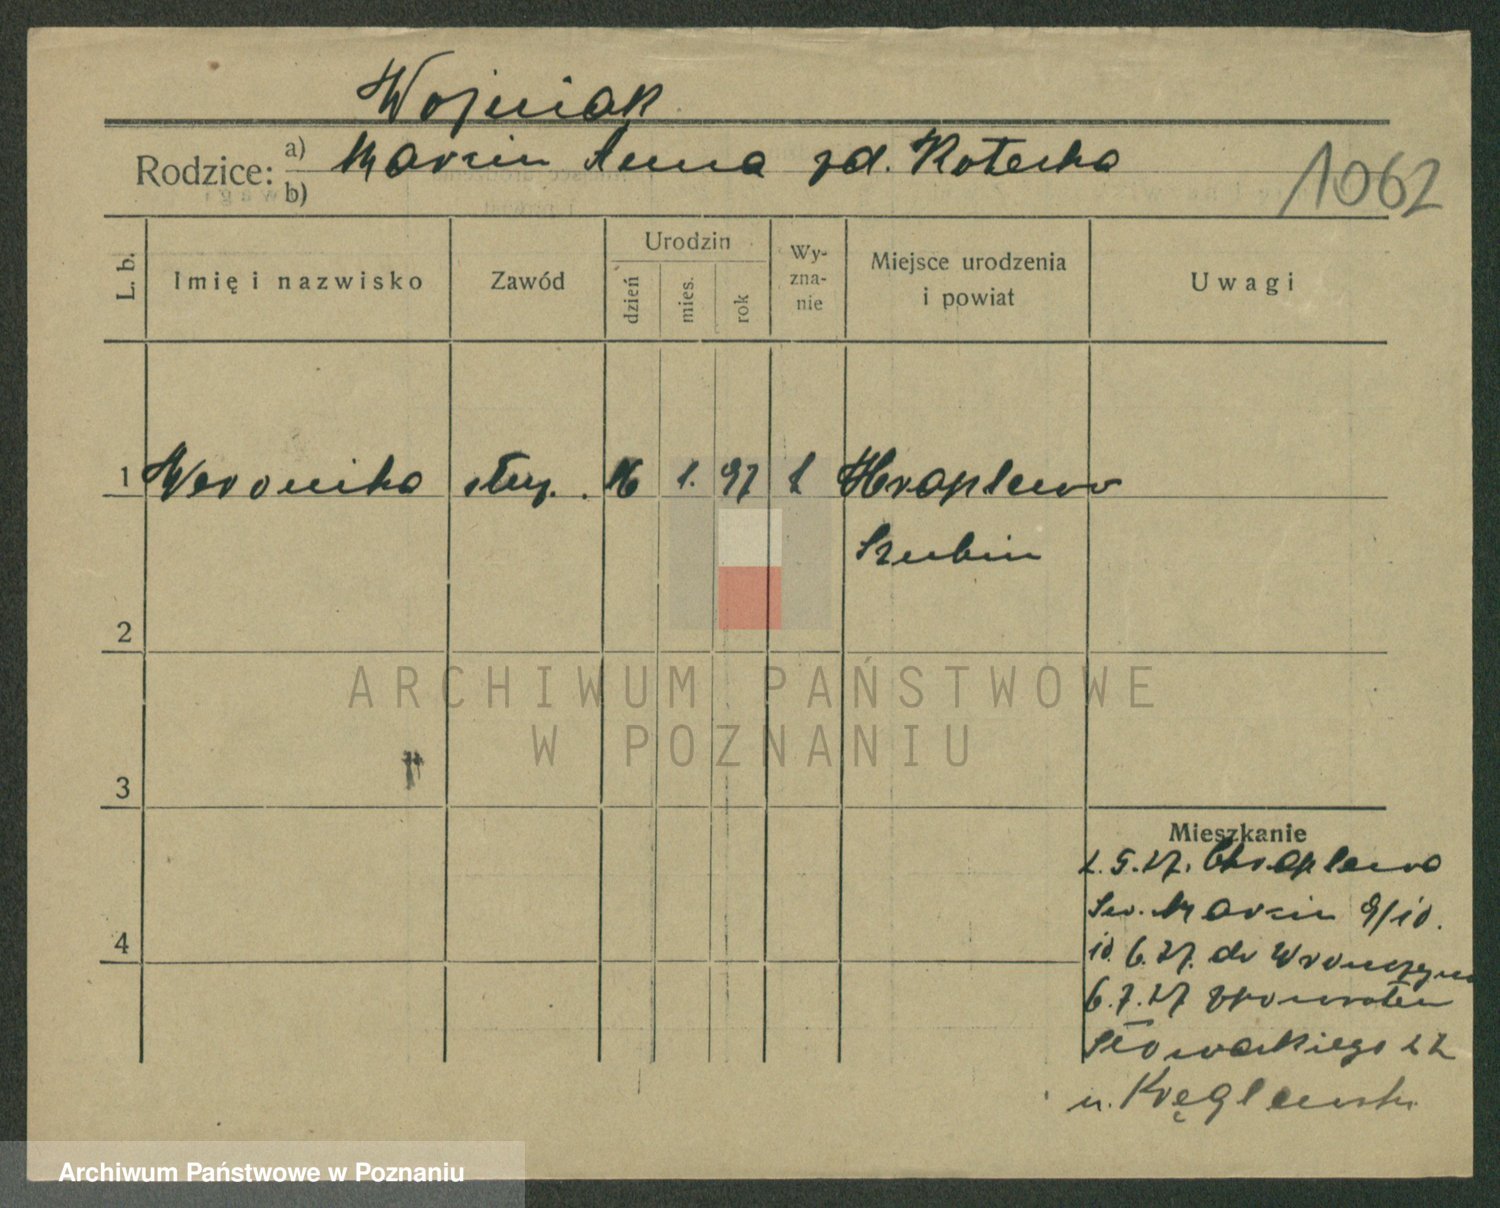 Wojniak
Rodzice: a) Marcin Anna zd. Kotecka
b)
1062
L. b.
Imię i nazwisko
Zawód
Urodzin
dzień
mies.
rok
Wy-
zna-
nie
Miejsce urodzenia
i powiat
Uwagi
1 Weronika służ. 16 1. 97 k Chraplewo
Szubin
2
3
4
Mieszkanie
2.5.27. Chraplewo
Św. Marcin 9/10.
10.6.27. do Wronczyna
6.7.27 zpowrotem
Słowackiego 22
u. Kręglewski
ARCHIWUM PAŃSTWOWE
W POZNANIU
Archiwum Państwowe w Poznaniu